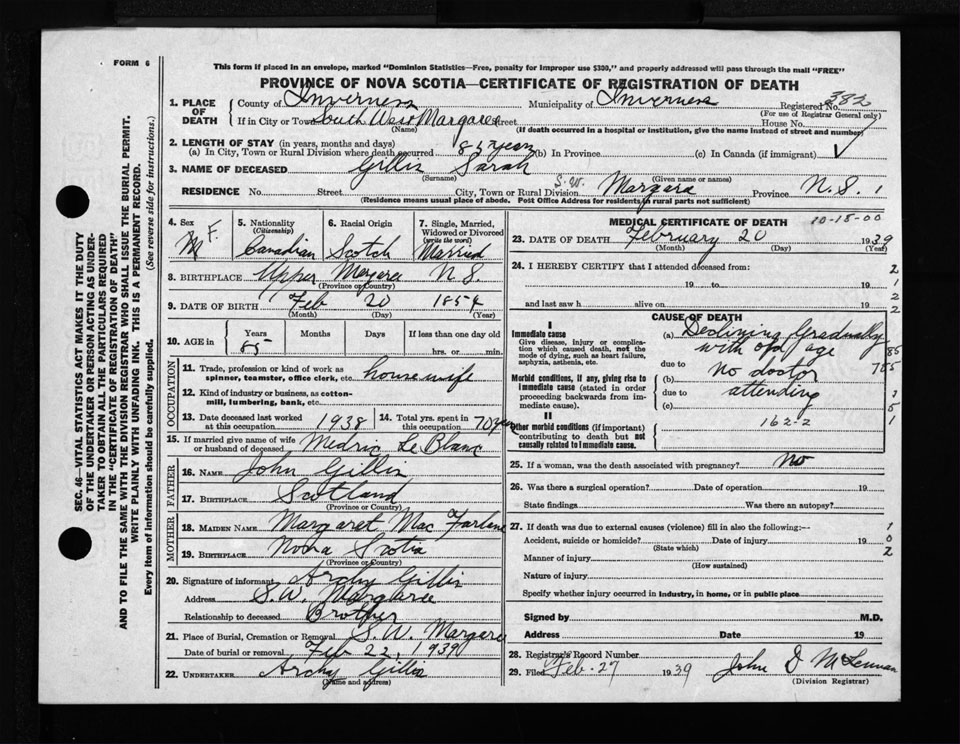 FORM 6
This form if placed in an envelope, marked "Dominion Statistics—Free, penalty for improper use $300," and properly addressed will pass through the mail "FREE"
PROVINCE OF NOVA SCOTIA—CERTIFICATE OF REGISTRATION OF DEATH
1. PLACE OF DEATH County of Inverness Municipality of Inverness Registered No. 382
(For use of Registrar General only)
If in City or Town South West Margaree Street House No.
(Name) (If death occurred in a hospital or institution, give the name instead of street and number)
2. LENGTH OF STAY (in years, months and days)
(a) In City, Town or Rural Division where death occurred 85 years (b) In Province (c) In Canada (if immigrant)
3. NAME OF DECEASED Gillis Sarah
(Surname) (Given name or names)
RESIDENCE No. Street City, Town or Rural Division S.W. Margaree Province N.S. 1
(Residence means usual place of abode. Post Office Address for residents in rural parts not sufficient)
SEC. 46—VITAL STATISTICS ACT MAKES IT THE DUTY
OF THE UNDERTAKER OR PERSON ACTING AS UNDER-
TAKER TO OBTAIN ALL THE PARTICULARS REQUIRED
IN THE "CERTIFICATE OF REGISTRATION OF DEATH"
AND TO FILE THE SAME WITH THE DIVISION REGISTRAR WHO SHALL ISSUE THE BURIAL PERMIT.
WRITE PLAINLY WITH UNFADING INK. THIS IS A PERMANENT RECORD.
Every item of information should be carefully supplied. (See reverse side for instructions.)
4. Sex M F.
5. Nationality (Citizenship) Canadian
6. Racial Origin Scotch
7. Single, Married, Widowed or Divorced (write the word) Married
8. BIRTHPLACE Upper Margaree N S.
(Province or Country)
9. DATE OF BIRTH Feb 20 1854
(Month) (Day) (Year)
10. AGE in Years 85 Months Days If less than one day old hrs. or min.
OCCUPATION
11. Trade, profession or kind of work as spinner, teamster, office clerk, etc. housewife
12. Kind of industry or business, as cotton-mill, lumbering, bank, etc.
13. Date deceased last worked at this occupation 1938
14. Total yrs. spent in this occupation 70 years
15. If married give name of wife or husband of deceased Medric Le Blanc
FATHER
16. NAME John Gillis
17. BIRTHPLACE Scotland
(Province or Country)
MOTHER
18. MAIDEN NAME Margaret Mac Farlane
19. BIRTHPLACE Nova Scotia
(Province or Country)
20. Signature of informant Archy Gillis
Address S.W. Margaree
Relationship to deceased Brother
21. Place of Burial, Cremation or Removal S.W. Margaree
Date of burial or removal Feb 22, 1939
22. UNDERTAKER Archy Gillis
(Name and address)
MEDICAL CERTIFICATE OF DEATH 10-18-00
23. DATE OF DEATH February 20 1939
(Month) (Day) (Year)
24. I HEREBY CERTIFY that I attended deceased from:
19 to 19
and last saw h alive on 19
CAUSE OF DEATH
I
Immediate cause
Give disease, injury or complication which caused death, not the mode of dying, such as heart failure, asphyxia, asthenia, etc.
(a) Declining Gradually
with old age
due to
Morbid conditions, if any, giving rise to immediate cause (stated in order proceeding backwards from immediate cause).
(b) No doctor
due to attending
(c)
II
Other morbid conditions (if important) contributing to death but not causally related to immediate cause.
162-2
25. If a woman, was the death associated with pregnancy? No
26. Was there a surgical operation? Date of operation 19
State findings Was there an autopsy?
27. If death was due to external causes (violence) fill in also the following:—
Accident, suicide or homicide? Date of injury 19
(State which)
Manner of injury
(How sustained)
Nature of injury
Specify whether injury occurred in industry, in home, or in public place
Signed by M.D.
Address Date 19
28. Registrar's Record Number
29. Filed Feb-27 1939 John D McLennan
(Division Registrar)